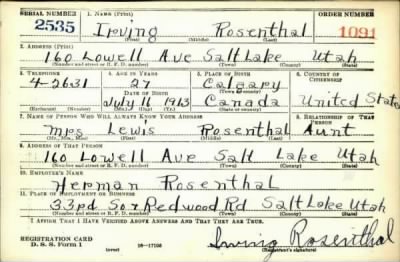 SERIAL NUMBER 1. NAME (Print) ORDER NUMBER
2535 Irving Rosenthal 1091
(First) (Middle) (Last)
2. ADDRESS (Print)
160 Lowell Ave Salt Lake Utah
(Number and street or R. F. D. number) (Town) (County) (State)
3. TELEPHONE 4. AGE IN YEARS 5. PLACE OF BIRTH 6. COUNTRY OF CITIZENSHIP
4-2631 27 Calgary
DATE OF BIRTH (Town or county)
July 16 1913 Canada United States
(Exchange) (Number) (Mo.) (Day) (Yr.) (State or country)
7. NAME OF PERSON WHO WILL ALWAYS KNOW YOUR ADDRESS 8. RELATIONSHIP OF THAT PERSON
Mrs Lewis Rosenthal Aunt
(Mr., Mrs., Miss) (First) (Middle) (Last)
9. ADDRESS OF THAT PERSON
160 Lowell Ave Salt Lake Utah
(Number and street or R. F. D. number) (Town) (County) (State)
10. EMPLOYER'S NAME
Herman Rosenthal
11. PLACE OF EMPLOYMENT OR BUSINESS
33rd So & Redwood Rd Salt Lake Utah
(Number and street or R. F. D. number) (Town) (County) (State)
I AFFIRM THAT I HAVE VERIFIED ABOVE ANSWERS AND THAT THEY ARE TRUE.
REGISTRATION CARD
D. S. S. Form 1 (over) Irving Rosenthal
(Registrant's signature)